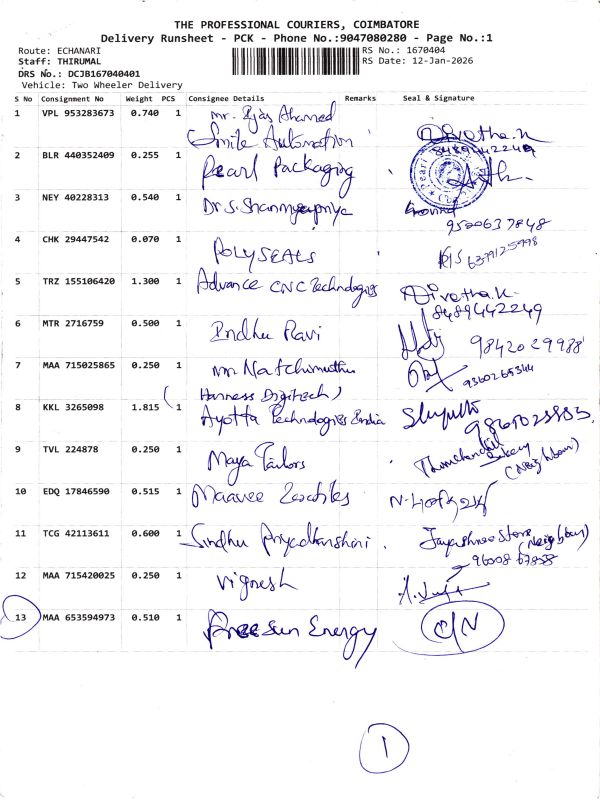 THE PROFESSIONAL COURIERS, COIMBATORE
Delivery Runsheet - PCK - Phone No.:9047080280 - Page No.:1
Route: ECHANARI RS No.: 1670404
Staff: THIRUMAL RS Date: 12-Jan-2026
DRS No.: DCJB167040401
Vehicle: Two Wheeler Delivery
S No Consignment No Weight PCS Consignee Details Remarks Seal & Signature
1 VPL 953283673 0.740 1 Mr. Ejas Ahamed
Smile Automation Nivetha.K
8489442249
2 BLR 440352409 0.255 1 Pearl Packaging
3 NEY 40228313 0.540 1 Dr S. Shanmugapriya Govind
9520637848
4 CHK 29447542 0.070 1 POLYSEALS 6379125998
5 TRZ 155106420 1.300 1 Advance CNC Technologies Nivetha.K
8489442249
6 MTR 2716759 0.500 1 Indhu Ravi 9842029988
7 MAA 715025865 0.250 1 Mr. Natchimuthu 9360265344
(Harness Digitech)
8 KKL 3265098 1.815 1 Ayotta Technologies India
9 TVL 224878 0.250 1 Maya Tailors Bakery
(Neighbour)
10 EDQ 17846590 0.515 1 Maavee Textiles
11 TCG 42113611 0.600 1 Sindhu Priyadharshini. Jayashree Store (Neighbour)
12 MAA 715420025 0.250 1 Vignesh
13 MAA 653594973 0.510 1 Free Sun Energy C/N
1